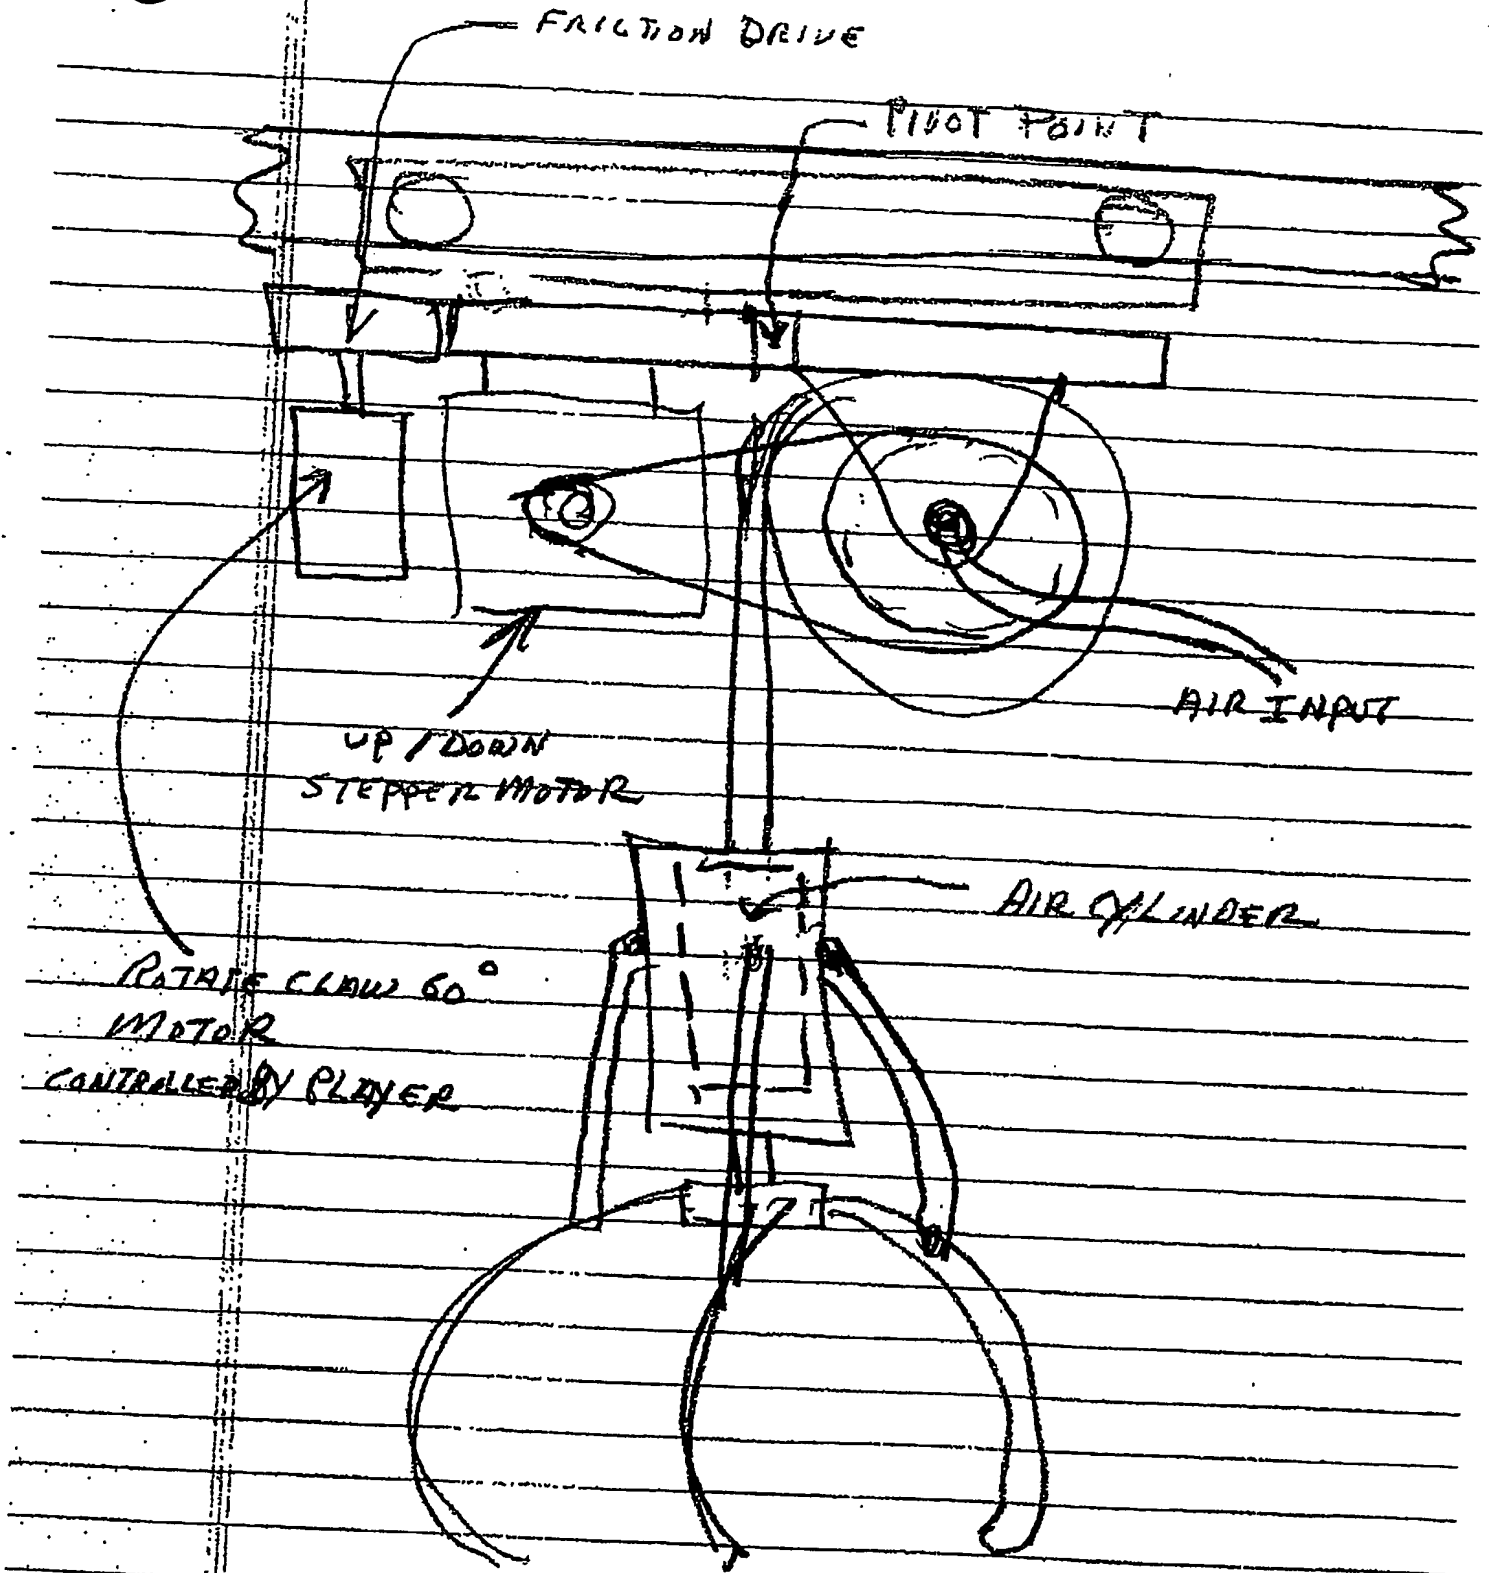 FRICTION DRIVE
PIVOT POINT
AIR INPUT
UP / DOWN
STEPPER MOTOR
AIR CYLINDER
ROTATE CLAW 60°
MOTOR
CONTROLLED BY PLAYER